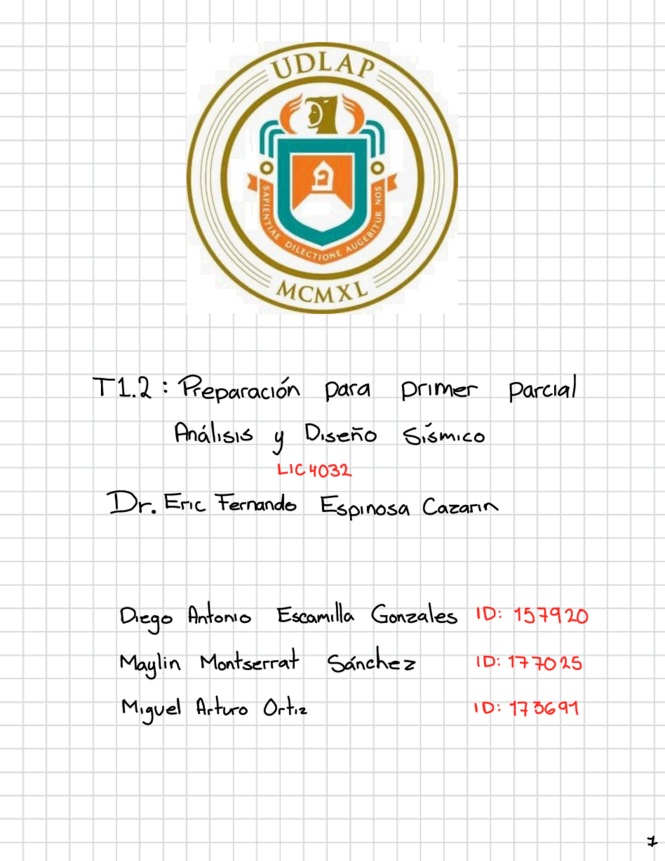 UDLAP
SAPIENTIAE DILECTIONE AUGEBITUR NOS
MCMXL
T1.2: Preparación para primer parcial
Análisis y Diseño Sísmico
LIC4032
Dr. Eric Fernando Espinosa Cazarin
Diego Antonio Escamilla Gonzales ID: 157920
Maylin Montserrat Sánchez ID: 177025
Miguel Arturo Ortiz ID: 173691
1